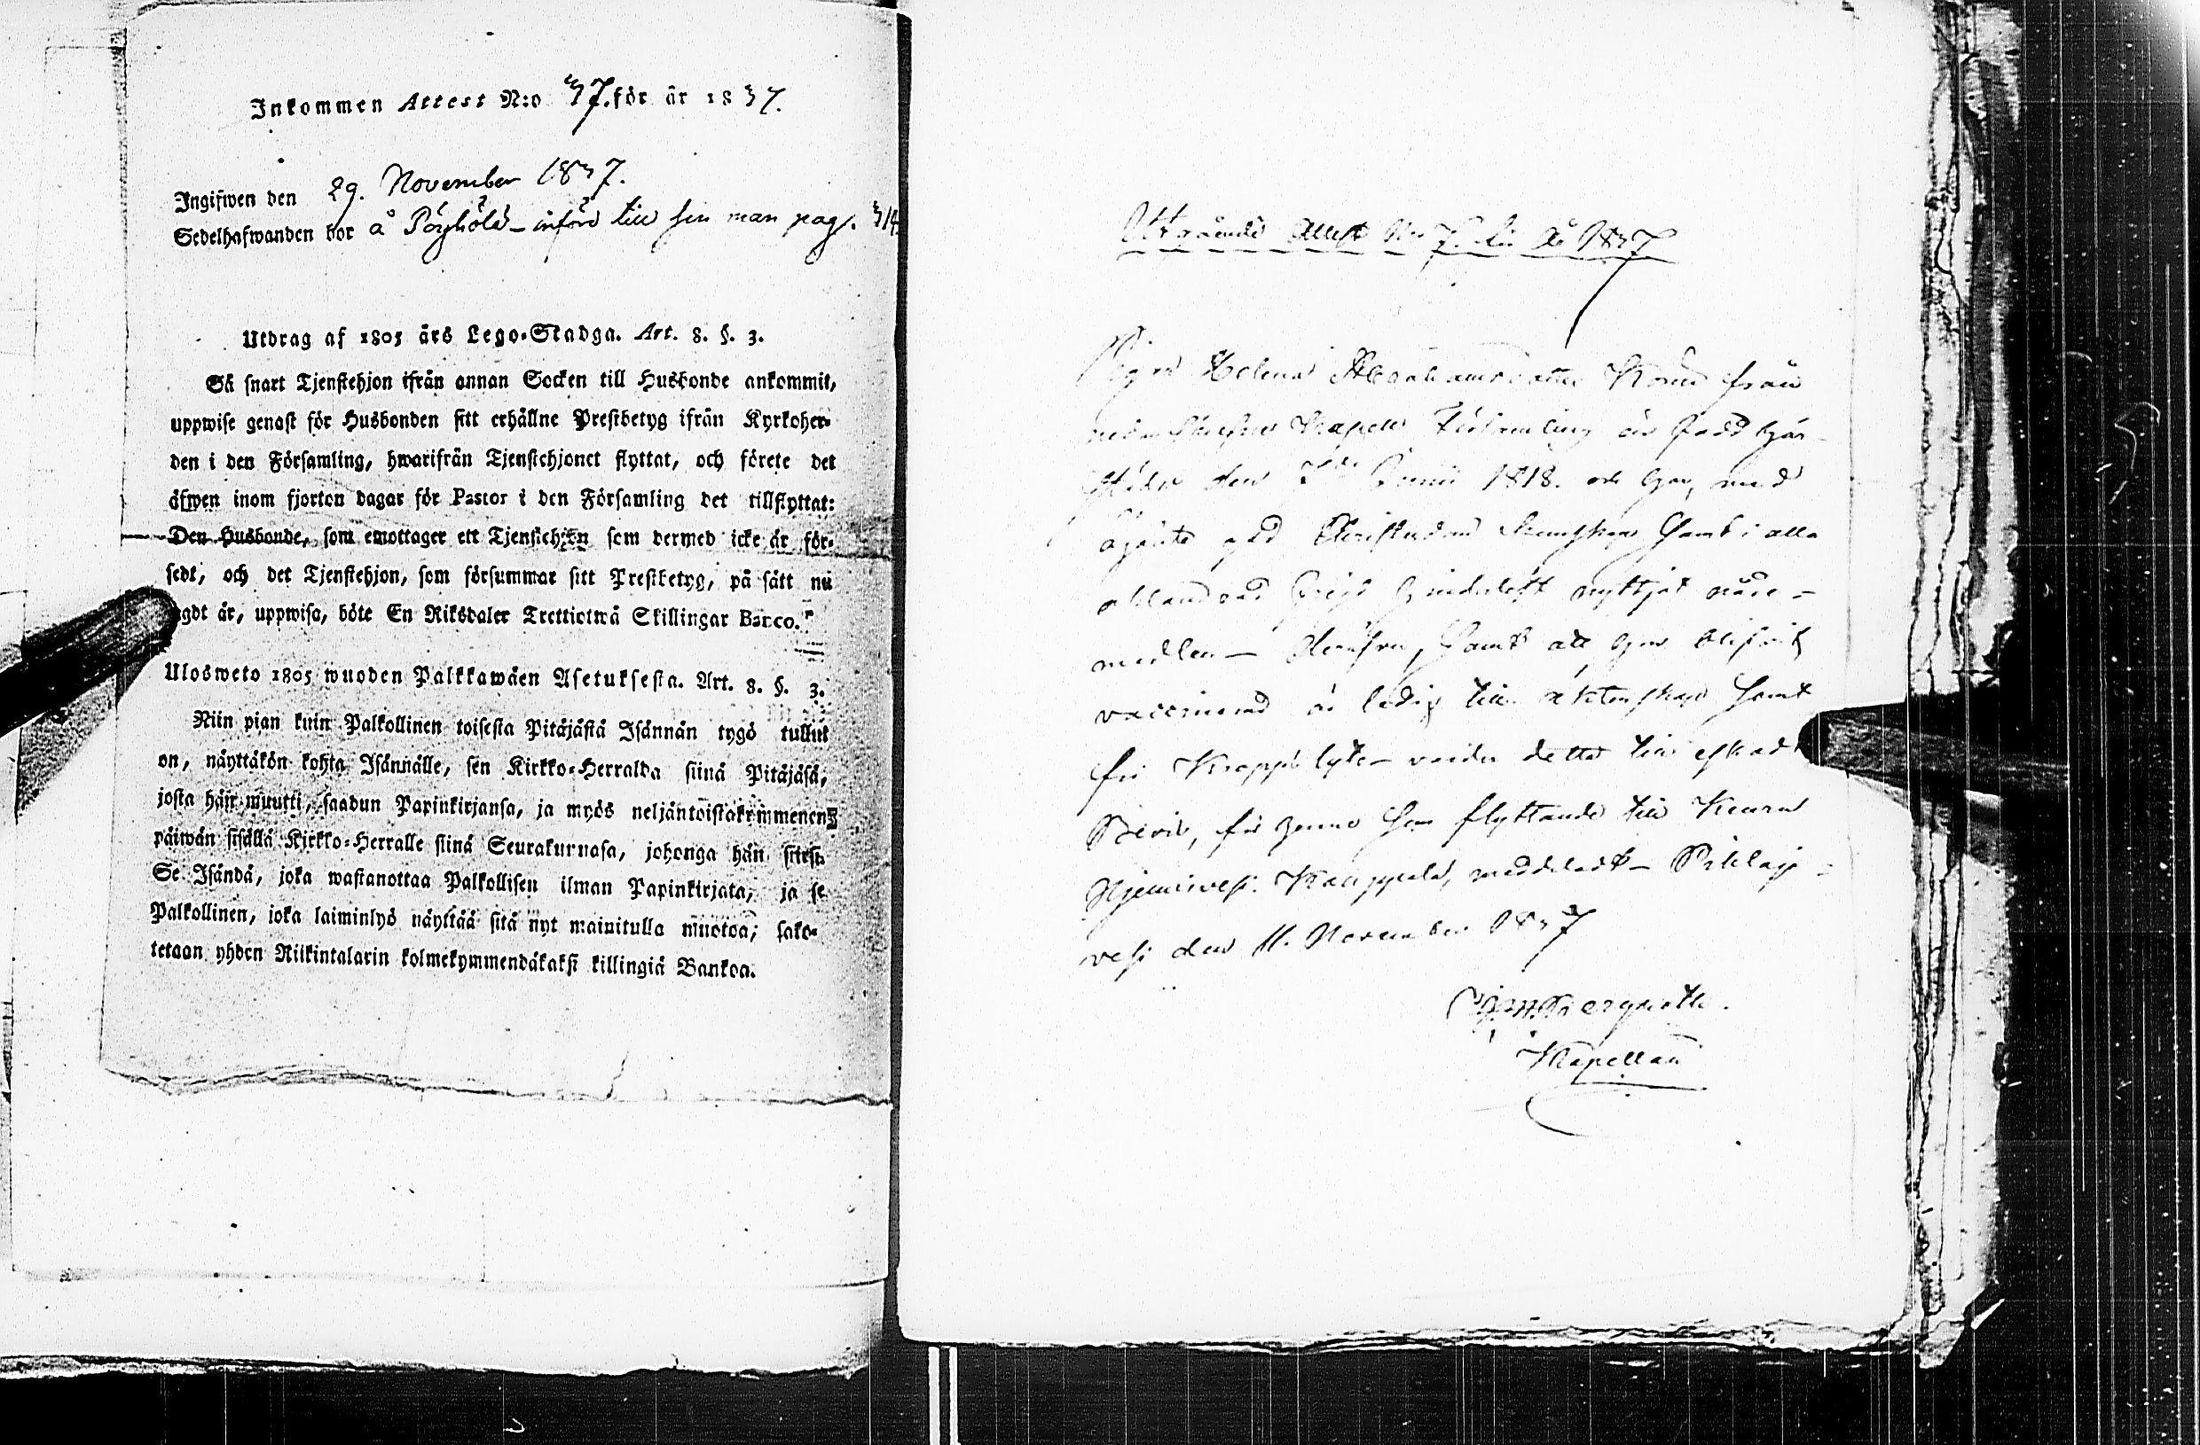 Inkommen Attest N:o 37. för år 1837.
Ingifwen den 29. November 1837.
Sedelhafwanden bor å Pöyhölä införd till sin man pag. 314
Utdrag af 1805 års Lego-Stadga. Art. 8. §. 3.
Så snart Tjenstehjon ifrån annan Socken till Husbonde ankommit,
uppwise genast för Husbonden sitt erhållne Prestbetyg ifrån Kyrkoher-
den i den Församling, hwarifrån Tjenstehjonet flyttat, och förete det
äfwen inom fjorton dagar för Pastor i den Församling det tillflyttat:
Den Husbonde, som emottager ett Tjenstehjon som dermed icke är för-
sedt, och det Tjenstehjon, som försummar sitt Prestbetyg, på sätt nu
sagdt är, uppwisa, böte En Riksdaler Trettiotwå Skillingar Banco."
Ulosweto 1805 wuoden Palkkawäen Asetuksesta. Art. 8. §. 3.
Niin pian kuin Palkollinen toisesta Pitäjästä Isännän tygö tullut
on, näyttäkön kohta Isännälle, sen Kirkko-Herralda siinä Pitäjäsä,
josta hän muutti, saadun Papinkirjansa, ja myös neljäntoistakymmenen
päiwän sisällä Kirkko-Herralle siinä Seurakunnasa, johonga hän siirsi.
Se Isändä, joka wastanottaa Palkollisen ilman Papinkirjata, ja se
Palkollinen, joka laiminlyö näyttää sitä nyt mainitulla muotoa, sako-
tetaan yhden Riikintalarin kolmekymmendäkaksi killingiä Bankoa.
Utgående Attest No 7. för År 1837
Pigan Helena Abrahamsdotter från
Kapell Församling är född här-
städes den Junii 1818. och har, med
ägande god Christendoms kunskap samt i alla
afseenden hinderlöst nyttjat nåde-
medlen samt att hon blifvit
vaccinerad är ledig till äktenskap samt
fri kropps lyte varder detta till äskadt
Bevis, för henne som flyttande till Keuru
meddeladt Pihlaja-
vesi den 11. November 1837
Bergroth.
Kapellan